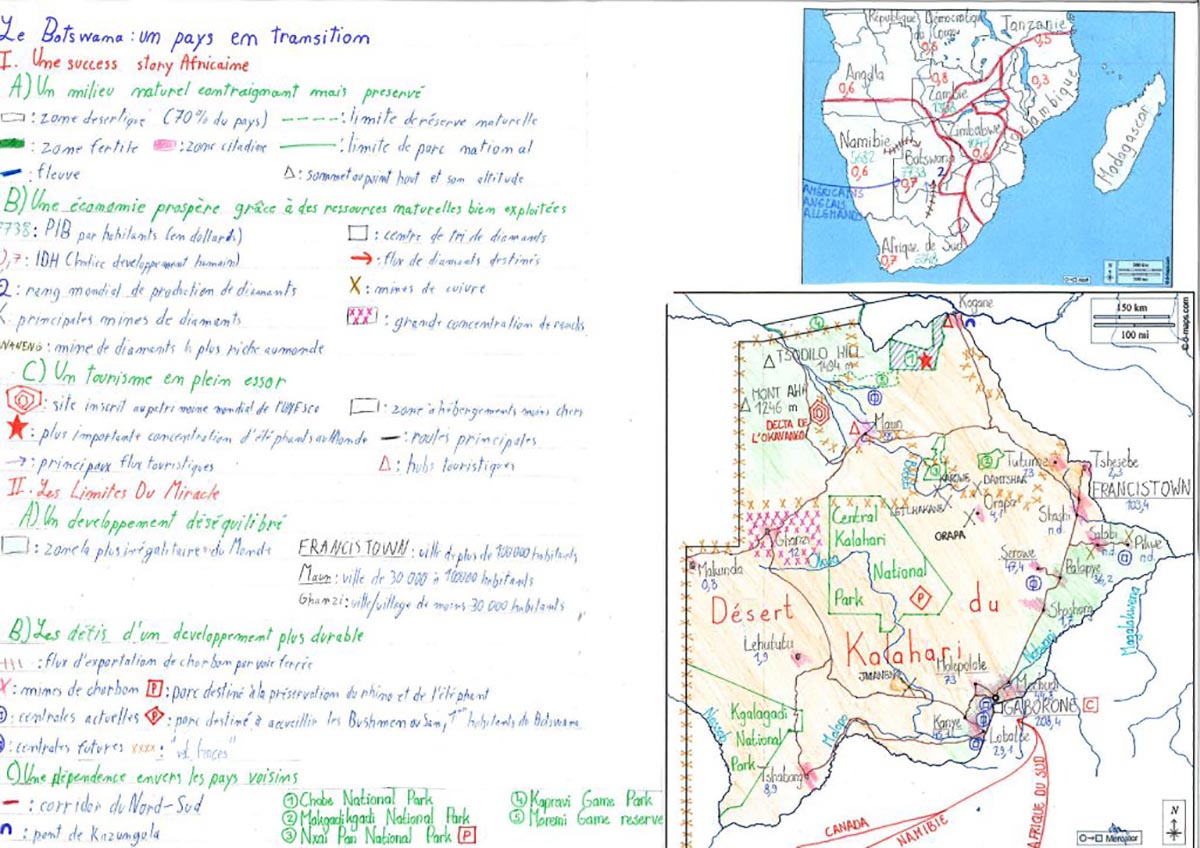 Le Botswana : un pays en transition
I. Une success story Africaine
A) Un milieu naturel contraignant mais preservé
: zone desertique (70% du pays)
: limite de réserve naturelle
: zone fertile
: zone citadine
: limite de parc national
: fleuve
: sommet ou point haut et son altitude
B) Une économie prospère grâce à des ressources naturelles bien exploitées
7738 : PIB par habitants (en dollards)
: centre de tri de diamants
0,7 : IDH (Indice developpement humain)
: flux de diamants destinés
2 : rang mondial de production de diamants
X : mines de cuivre
: principales mines de diamants
: grande concentration de ranchs
: mine de diamants la plus riche au monde
C) Un tourisme en plein essor
: site inscrit au patrimoine mondial de l'UNESCO
: zone à hébergements moins chers
: plus importante concentration d'éléphants au Monde
: routes principales
: principaux flux touristiques
: hubs touristiques
II. Les Limites Du Miracle
A) Un developpement déséquilibré
: zone la plus inégalitaire du Monde
FRANCISTOWN : ville de plus de 100 000 habitants
Maun : ville de 30 000 à 100000 habitants
Ghanzi : ville/village de moins 30 000 habitants
B) Les défis d'un developpement plus durable
: flux d'exportation de charbon par voie ferrée
X : mines de charbon
P : parc destiné à la préservation du rhino et de l'éléphant
: centrales actuelles
P : parc destiné à accueillir les Bushmen ou San, 1ers habitants du Botswana
: centrales futures
xxxx :
C) Une dépendence envers les pays voisins
: corridor du Nord-Sud
: pont de Kazungula
① Chobe National Park
② Makgadikgadi National Park
③ Nxai Pan National Park P
④ Kapravi Game Park
⑤ Moremi Game reserve
République Démocratique
du Congo
0,6
Tanzanie
0,5
Angola
0,6
0,8
Zambie
0,3
Mozambique
Madagascar
Namibie
5682
0,6
Zimbabwe
0,6
Botswana
7733
0,7
2
AMÉRICAINS
ANGLAIS
ALLEMANDS
Afrique du Sud
0,7
150 km
100 mi
© d-maps.com
TSODILO HILL
1494 m
1246 m
DELTA DE
L'OKAVANGO
Maun
KAROWE
DAMTSHAA
LETLHAKANE
Orapa
ORAPA
Tutume
Tshesebe
2,3
FRANCISTOWN
103,4
Shashi
n.d.
n.d.
n.d.
Serowe
47,4
Palapye
36,2
Shoshong
Ghanzi
12
Makunda
0,3
Central
Kalahari
National
Park
P
Désert
du
Kalahari
Lehututu
1,9
JWANENG
Molepolole
73
Mochudi
GABORONE
C
208,4
Kanye
Lobatse
29,1
Kgalagadi
National
Park
Nossob
Molopo
Tshabong
8,9
CANADA
NAMIBIE
AFRIQUE DU SUD
N
Mercator